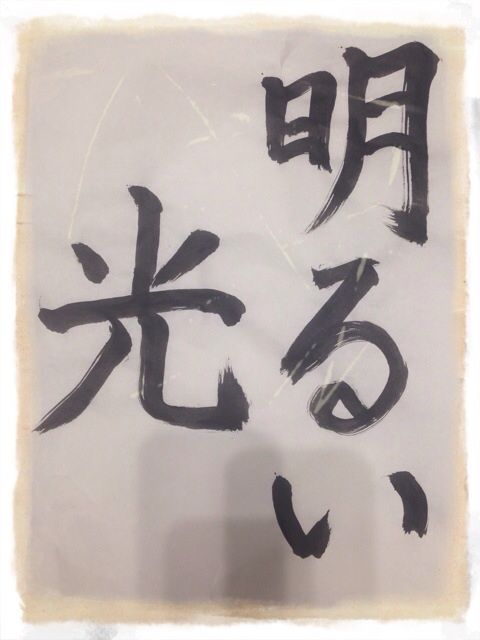 明るい
光